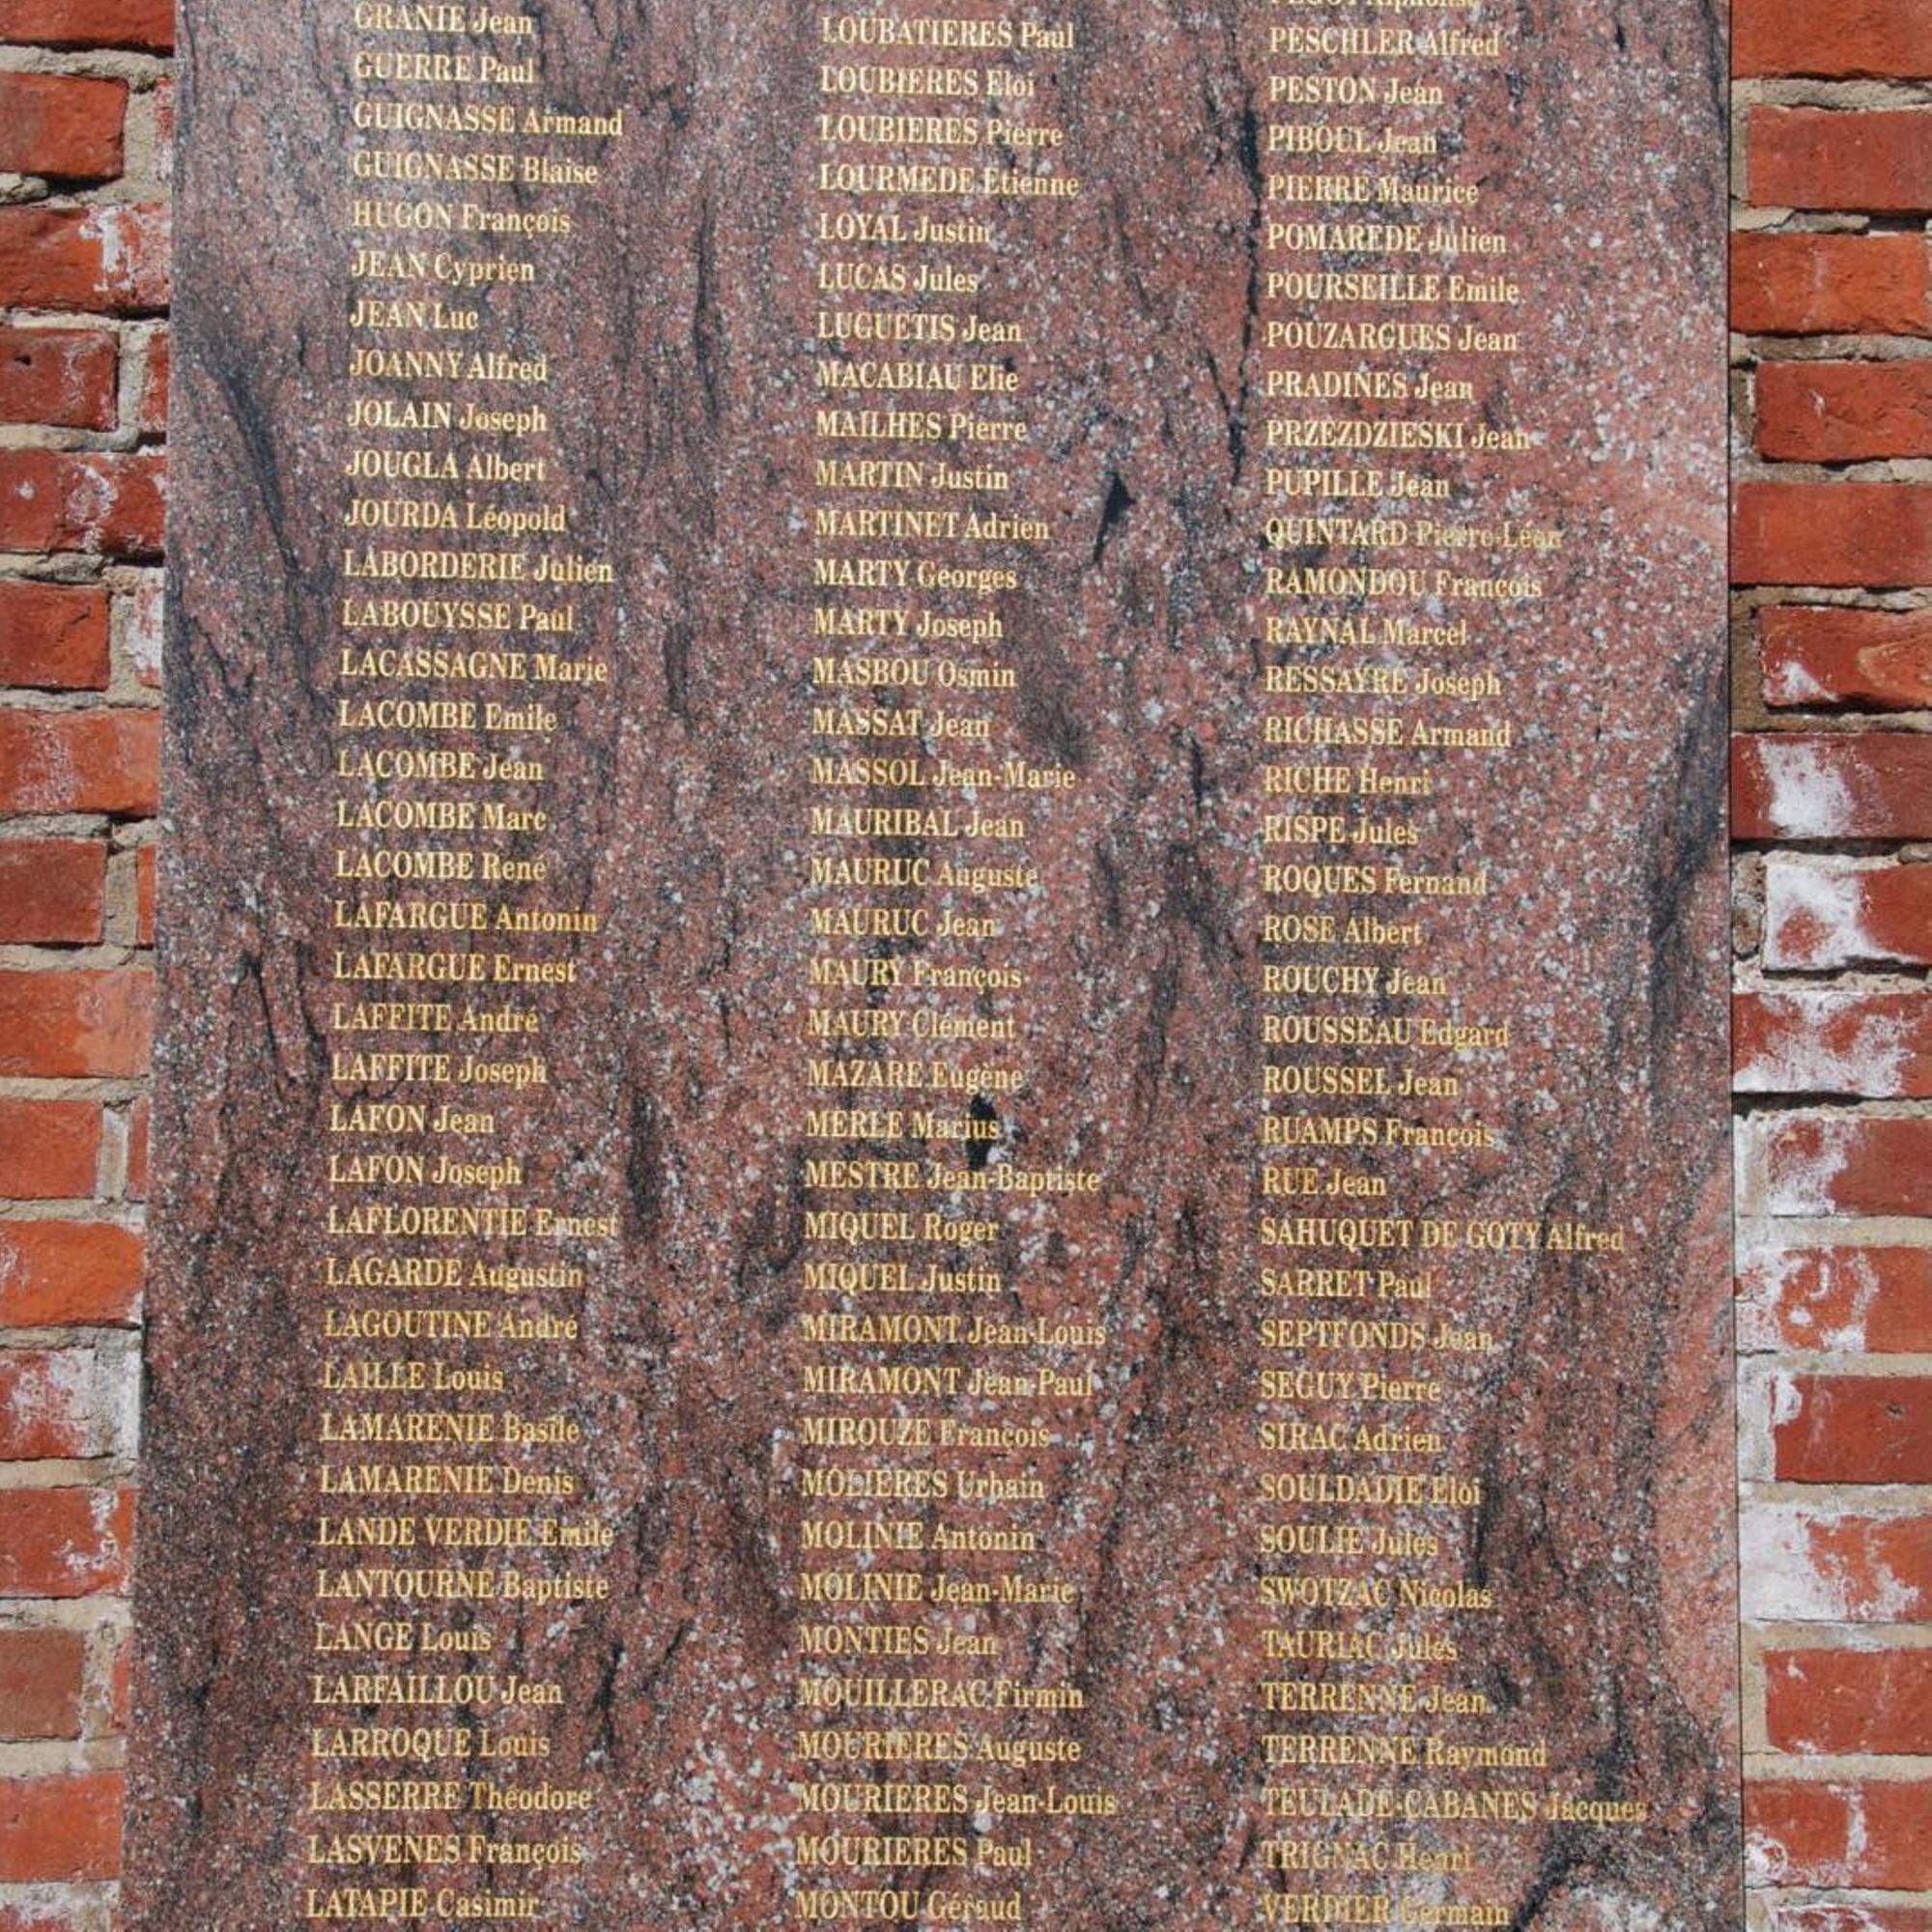 GRANIE Jean
GUERRE Paul
GUIGNASSE Armand
GUIGNASSE Blaise
HUGON François
JEAN Cyprien
JEAN Luc
JOANNY Alfred
JOLAIN Joseph
JOUGLA Albert
JOURDA Léopold
LABORDERIE Julien
LABOUYSSE Paul
LACASSAGNE Marie
LACOMBE Emile
LACOMBE Jean
LACOMBE Marc
LACOMBE René
LAFARGUE Antonin
LAFARGUE Ernest
LAFFITE André
LAFFITE Joseph
LAFON Jean
LAFON Joseph
LAFLORENTIE Ernest
LAGARDE Augustin
LAGOUTINE André
LAILLE Louis
LAMARENIE Basile
LAMARENIE Denis
LANDE VERDIE Emile
LANTOURNE Baptiste
LANGE Louis
LARFAILLOU Jean
LARROQUE Louis
LASSERRE Théodore
LASVENES François
LATAPIE Casimir
LOUBATIERES Paul
LOUBIERES Eloi
LOUBIERES Pierre
LOURMEDE Etienne
LOYAL Justin
LUCAS Jules
LUGUETIS Jean
MACABIAU Elie
MAILHES Pierre
MARTIN Justin
MARTINET Adrien
MARTY Georges
MARTY Joseph
MASBOU Osmin
MASSAT Jean
MASSOL Jean-Marie
MAURIBAL Jean
MAURUC Auguste
MAURUC Jean
MAURY François
MAURY Clément
MAZARE Eugène
MERLE Marius
MESTRE Jean-Baptiste
MIQUEL Roger
MIQUEL Justin
MIRAMONT Jean-Louis
MIRAMONT Jean-Paul
MIROUZE François
MOLIERES Urbain
MOLINIE Antonin
MOLINIE Jean-Marie
MONTIES Jean
MOUILLERAC Firmin
MOURIERES Auguste
MOURIERES Jean-Louis
MOURIERES Paul
MONTOU Géraud
PESCHLER Alfred
PESTON Jean
PIBOUL Jean
PIERRE Maurice
POMAREDE Julien
POURSEILLE Emile
POUZARGUES Jean
PRADINES Jean
PRZEZDZIESKI Jean
PUPILLE Jean
QUINTARD Pierre-Léon
RAMONDOU François
RAYNAL Marcel
RESSAYRE Joseph
RICHASSE Armand
RICHE Henri
RISPE Jules
ROQUES Fernand
ROSE Albert
ROUCHY Jean
ROUSSEAU Edgard
ROUSSEL Jean
RUAMPS François
RUE Jean
SAHUQUET DE GOTY Alfred
SARRET Paul
SEPTFONDS Jean
SEGUY Pierre
SIRAC Adrien
SOULDADIE Eloi
SOULIE Jules
SWOTZAC Nicolas
TAURIAC Jules
TERRENNE Jean
TERRENNE Raymond
TEULADE-CABANES Jacques
TRIGNAC Henri
VERDIER Germain